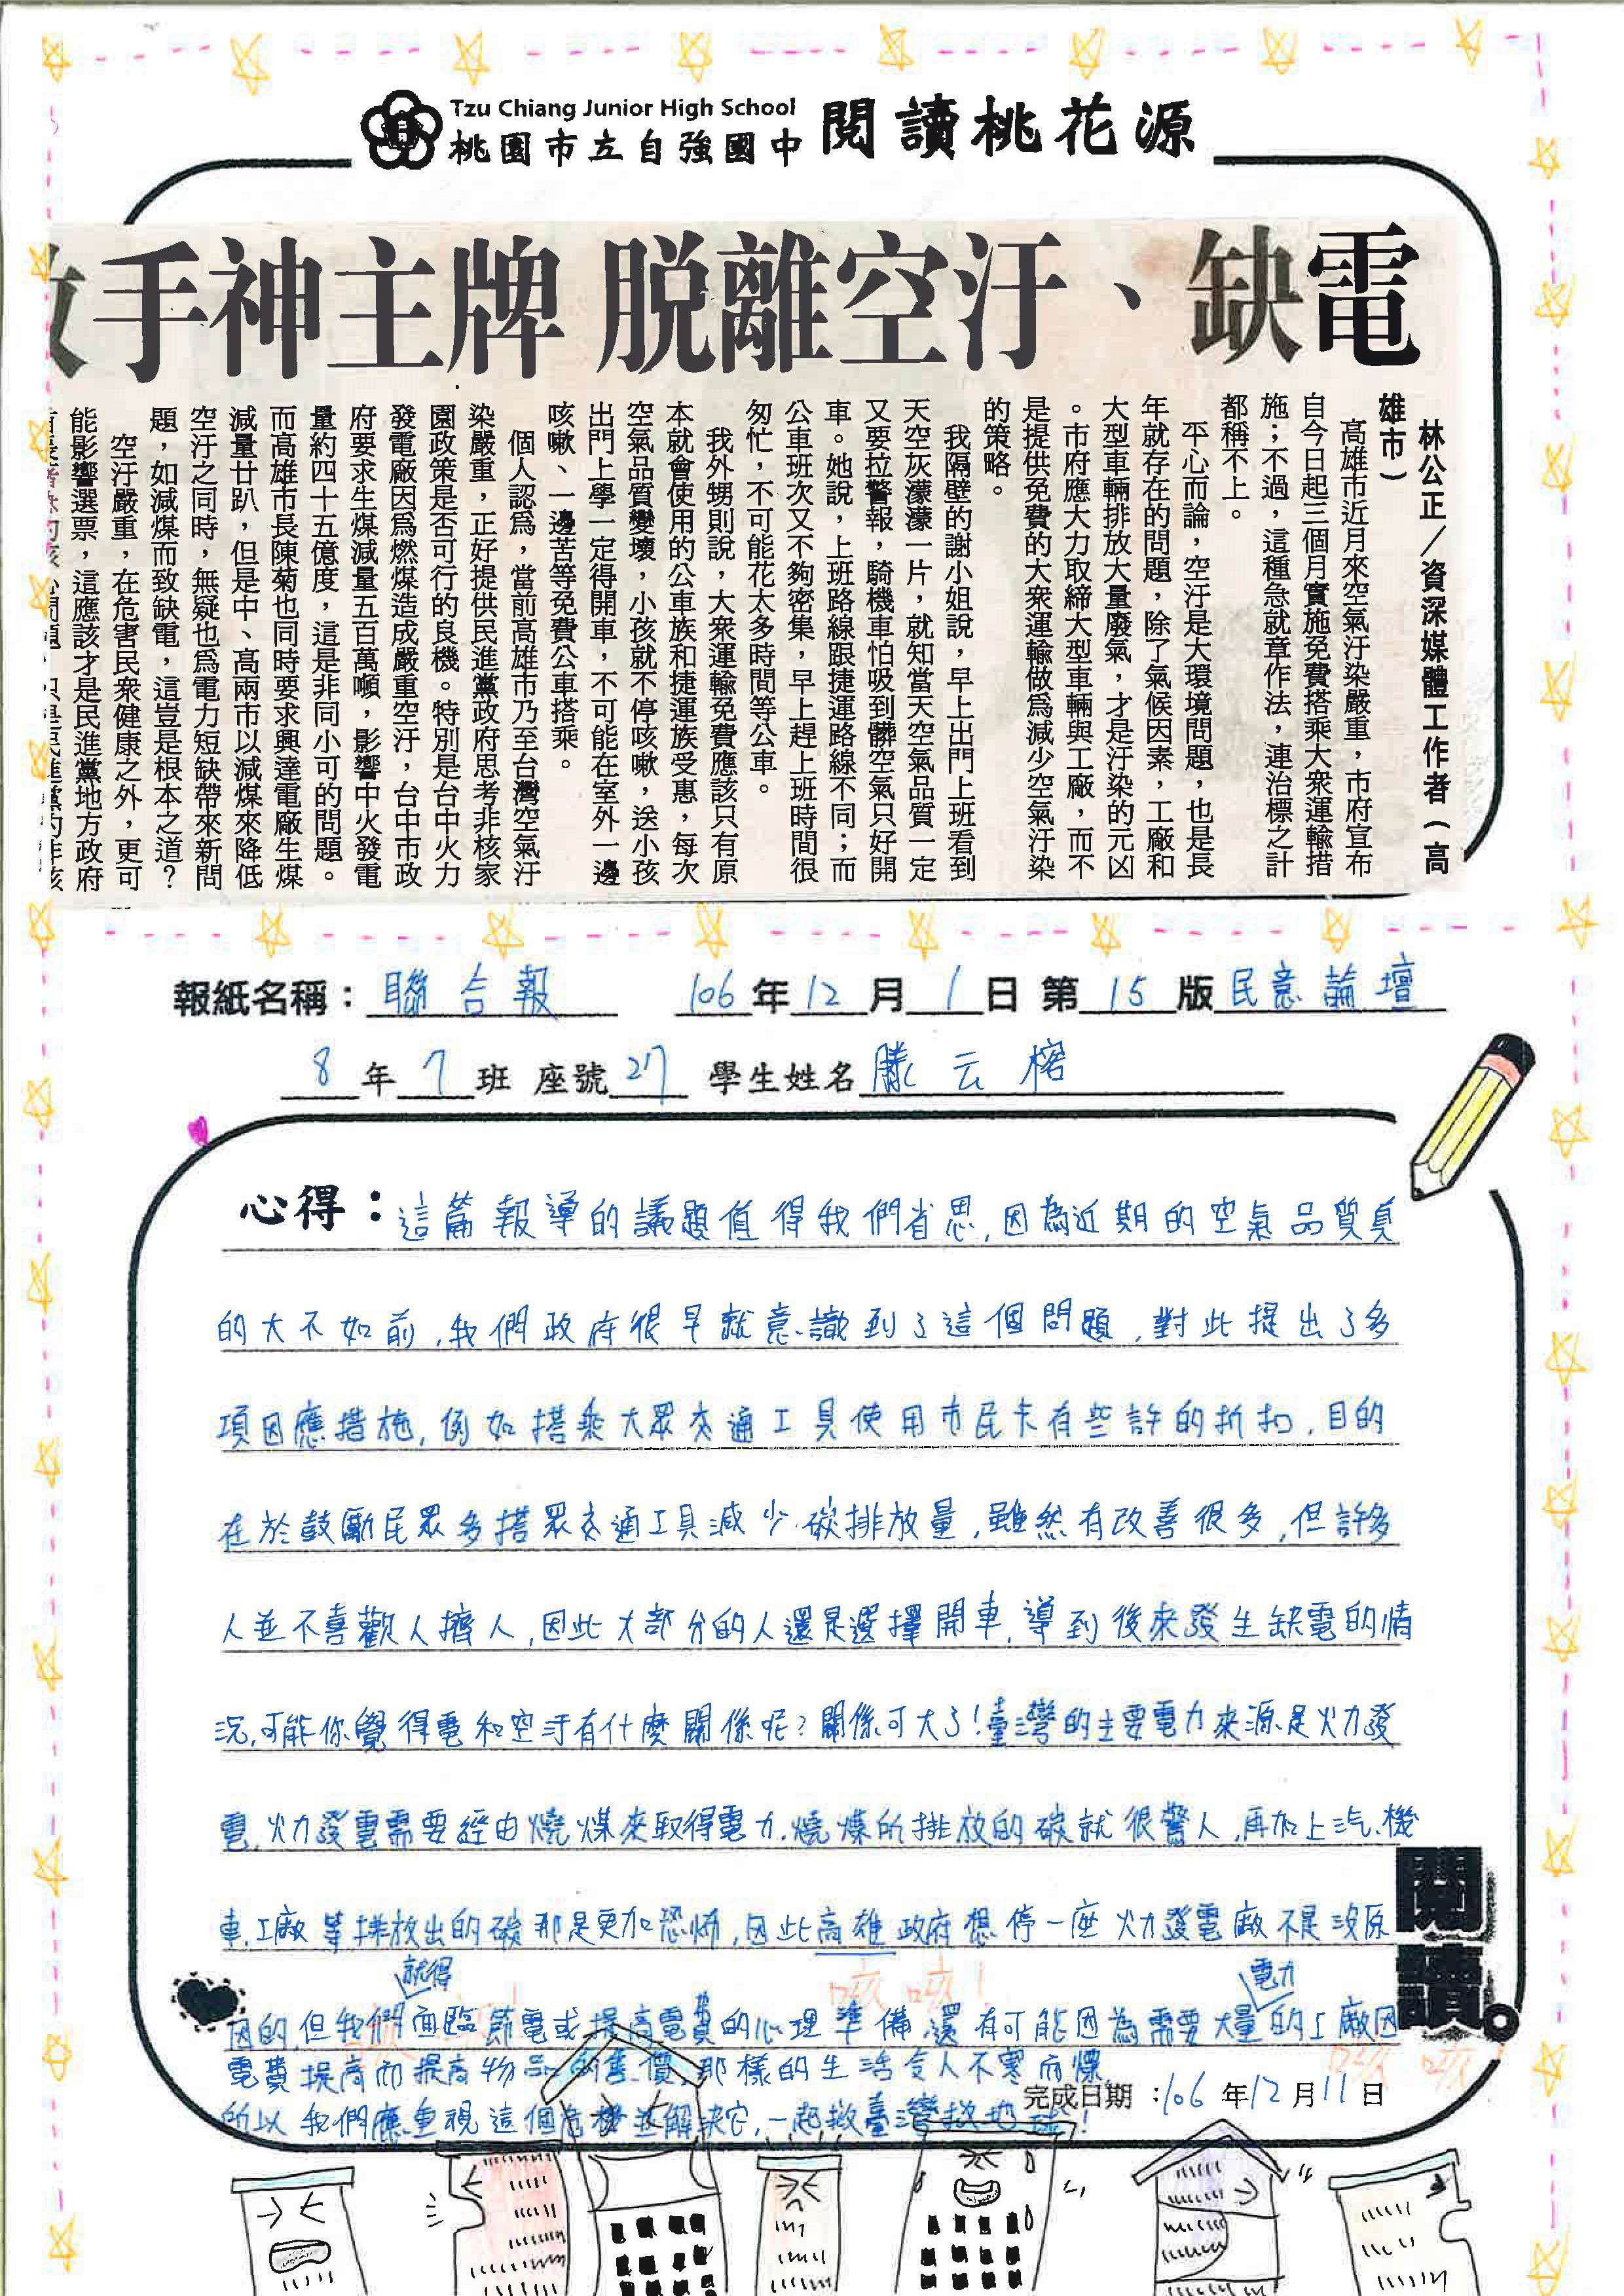 Tzu Chiang Junior High School
桃園市立自強國中 閱讀桃花源
手神主牌 脫離空汙、缺電
林公正╱資深媒體工作者（高
雄市）
高雄市近月來空氣汙染嚴重，市府宣布
自今日起三個月實施免費搭乘大眾運輸措
施；不過，這種急就章作法，連治標之計
都稱不上。
平心而論，空汙是大環境問題，也是長
年就存在的問題，除了氣候因素，工廠和
大型車輛排放大量廢氣，才是汙染的元凶
。市府應大力取締大型車輛與工廠，而不
是提供免費的大眾運輸做為減少空氣汙染
的策略。
我隔壁的謝小姐說，早上出門上班看到
天空灰濛濛一片，就知當天空氣品質一定
又要拉警報，騎機車怕吸到髒空氣只好開
車。她說，上班路線跟捷運路線不同；而
公車班次又不夠密集，早上趕上班時間很
匆忙，不可能花太多時間等公車。
我外甥則說，大眾運輸免費應該只有原
本就會使用的公車族和捷運族受惠，每次
空氣品質變壞，小孩就不停咳嗽，送小孩
出門上學一定得開車，不可能在室外一邊
咳嗽、一邊苦等免費公車搭乘。
個人認為，當前高雄市乃至台灣空氣汙
染嚴重，正好提供民進黨政府思考非核家
園政策是否可行的良機。特別是台中火力
發電廠因為燃煤造成嚴重空汙，台中市政
府要求生煤減量五百萬噸，影響中火發電
量約四十五億度，這是非同小可的問題。
而高雄市長陳菊也同時要求興達電廠生煤
減量廿趴，但是中、高兩市以減煤來降低
空汙之同時，無疑也為電力短缺帶來新問
題，如減煤而致缺電，這豈是根本之道？
空汙嚴重，在危害民眾健康之外，更可
能影響選票，這應該才是民進黨地方政府
報紙名稱：聯合報 106年12月1日 第15版民意論壇
8年7班 座號27 學生姓名 滕云榕
心得：這篇報導的議題值得我們省思，因為近期的空氣品質真
的大不如前，我們政府很早就意識到了這個問題，對此提出了多
項因應措施，例如搭乘大眾交通工具使用市民卡有些許的折扣，目的
在於鼓勵民眾多搭眾交通工具減少碳排放量，雖然有改善很多，但許多
人並不喜歡人擠人，因此大部分的人還是選擇開車，導到後來發生缺電的情
況，可能你覺得電和空汙有什麼關係呢？關係可大了！臺灣的主要電力來源是火力發
電，火力發電需要經由燒煤來取得電力，燒煤所排放的碳就很驚人，再加上汽、機
車、工廠等排放出的碳那是更加恐怖，因此高雄政府想停一座火力發電廠不是沒原
因的，但我們就得面臨節電或提高電費的心理準備，還有可能因為需要大量電力的工廠因
電費提高而提高物品的售價，那樣的生活令人不寒而慄
所以我們應重視這個危機並解決它，一起救臺灣救地球！
咳咳！
咳咳！
閱讀。
完成日期：106年12月11日